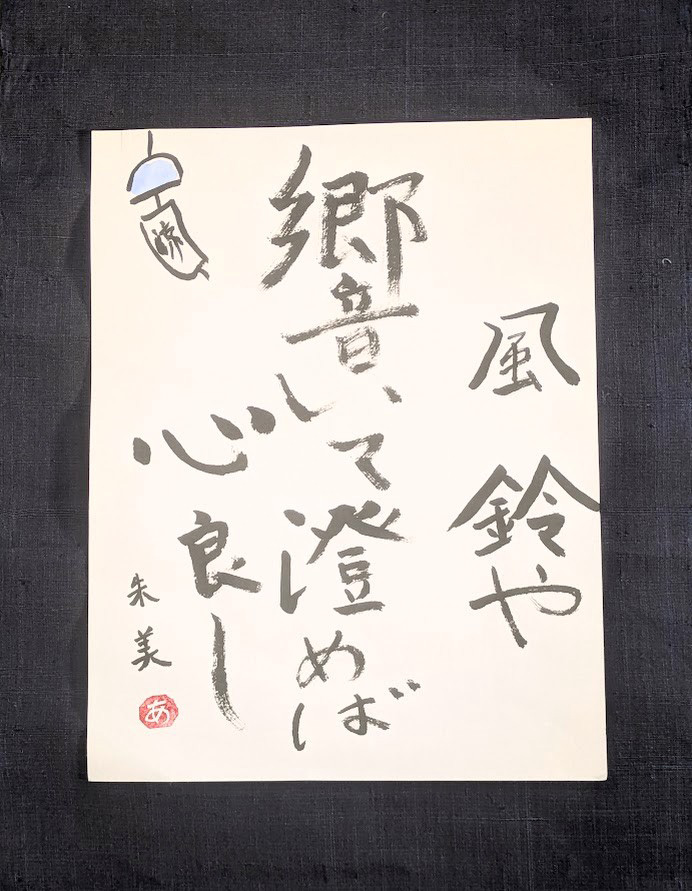 風鈴や
響いて澄めば
心良し
朱美
あ